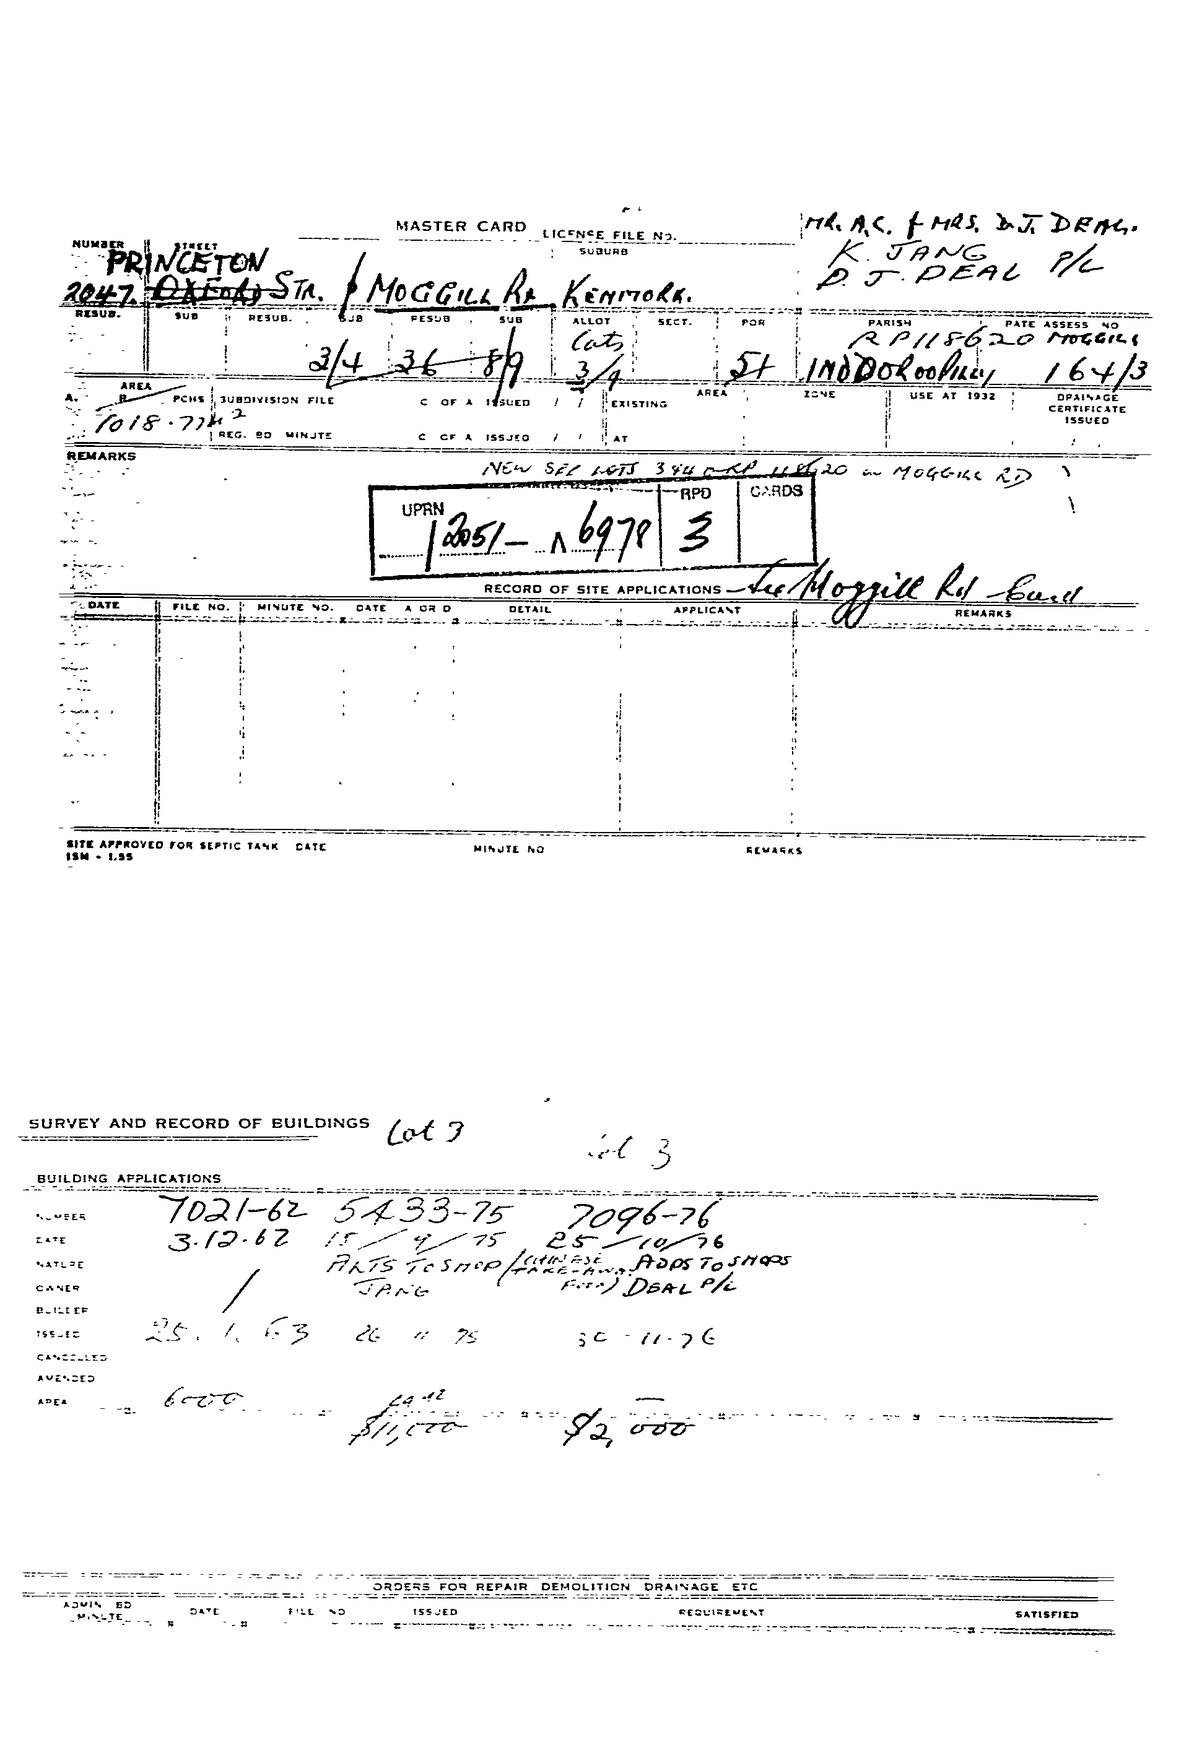 MASTER CARD LICENSE FILE NO.
MR. A.C. & MRS. D.J. DEAL.
K. JANG
D. J. DEAL P/L
NUMBER STREET SUBURB
PRINCETON
2047. OXFORD STR. / MOGGILL RD KENMORE.
RESUB. SUB RESUB. SUB RESUB SUB ALLOT SECT. POR PARISH RATE ASSESS NO
Lots RP118620 MOGGILL
3/4 36 8/9 3/4 51 INDOOROOPILLY 164/3
AREA
A. R. PCHS SUBDIVISION FILE C OF A ISSUED / / EXISTING AREA ZONE USE AT 1932 DRAINAGE CERTIFICATE ISSUED
1018.77M2
REG. BD MINUTE C OF A ISSUED / / AT
REMARKS
NEW SEC LOTS 3&4 RP 118620 on MOGGILL RD
UPRN RPD CARDS
12051- 6978 3
RECORD OF SITE APPLICATIONS - See Moggill Rd Card
DATE FILE NO. MINUTE NO. DATE A OR D DETAIL APPLICANT REMARKS
SITE APPROVED FOR SEPTIC TANK DATE MINUTE NO REMARKS
15M - 1.55
SURVEY AND RECORD OF BUILDINGS Lot 3
Lot 3
BUILDING APPLICATIONS
NUMBER 7021-62 5433-75 7096-76
DATE 3.12.62 15/9/75 25/10/76
NATURE / ALTS TO SHOP (CHINESE TAKE-AWAY FOOD) ADDS TO SHOPS
OWNER JANG DEAL P/L
BUILDER
ISSUED 25.1.63 26 " 75 30-11-76
CANCELLED
AMENDED
AREA 6000 —
$11,000 $2,000
ORDERS FOR REPAIR DEMOLITION DRAINAGE ETC
ADMIN BD MINUTE DATE FILE NO ISSUED REQUIREMENT SATISFIED